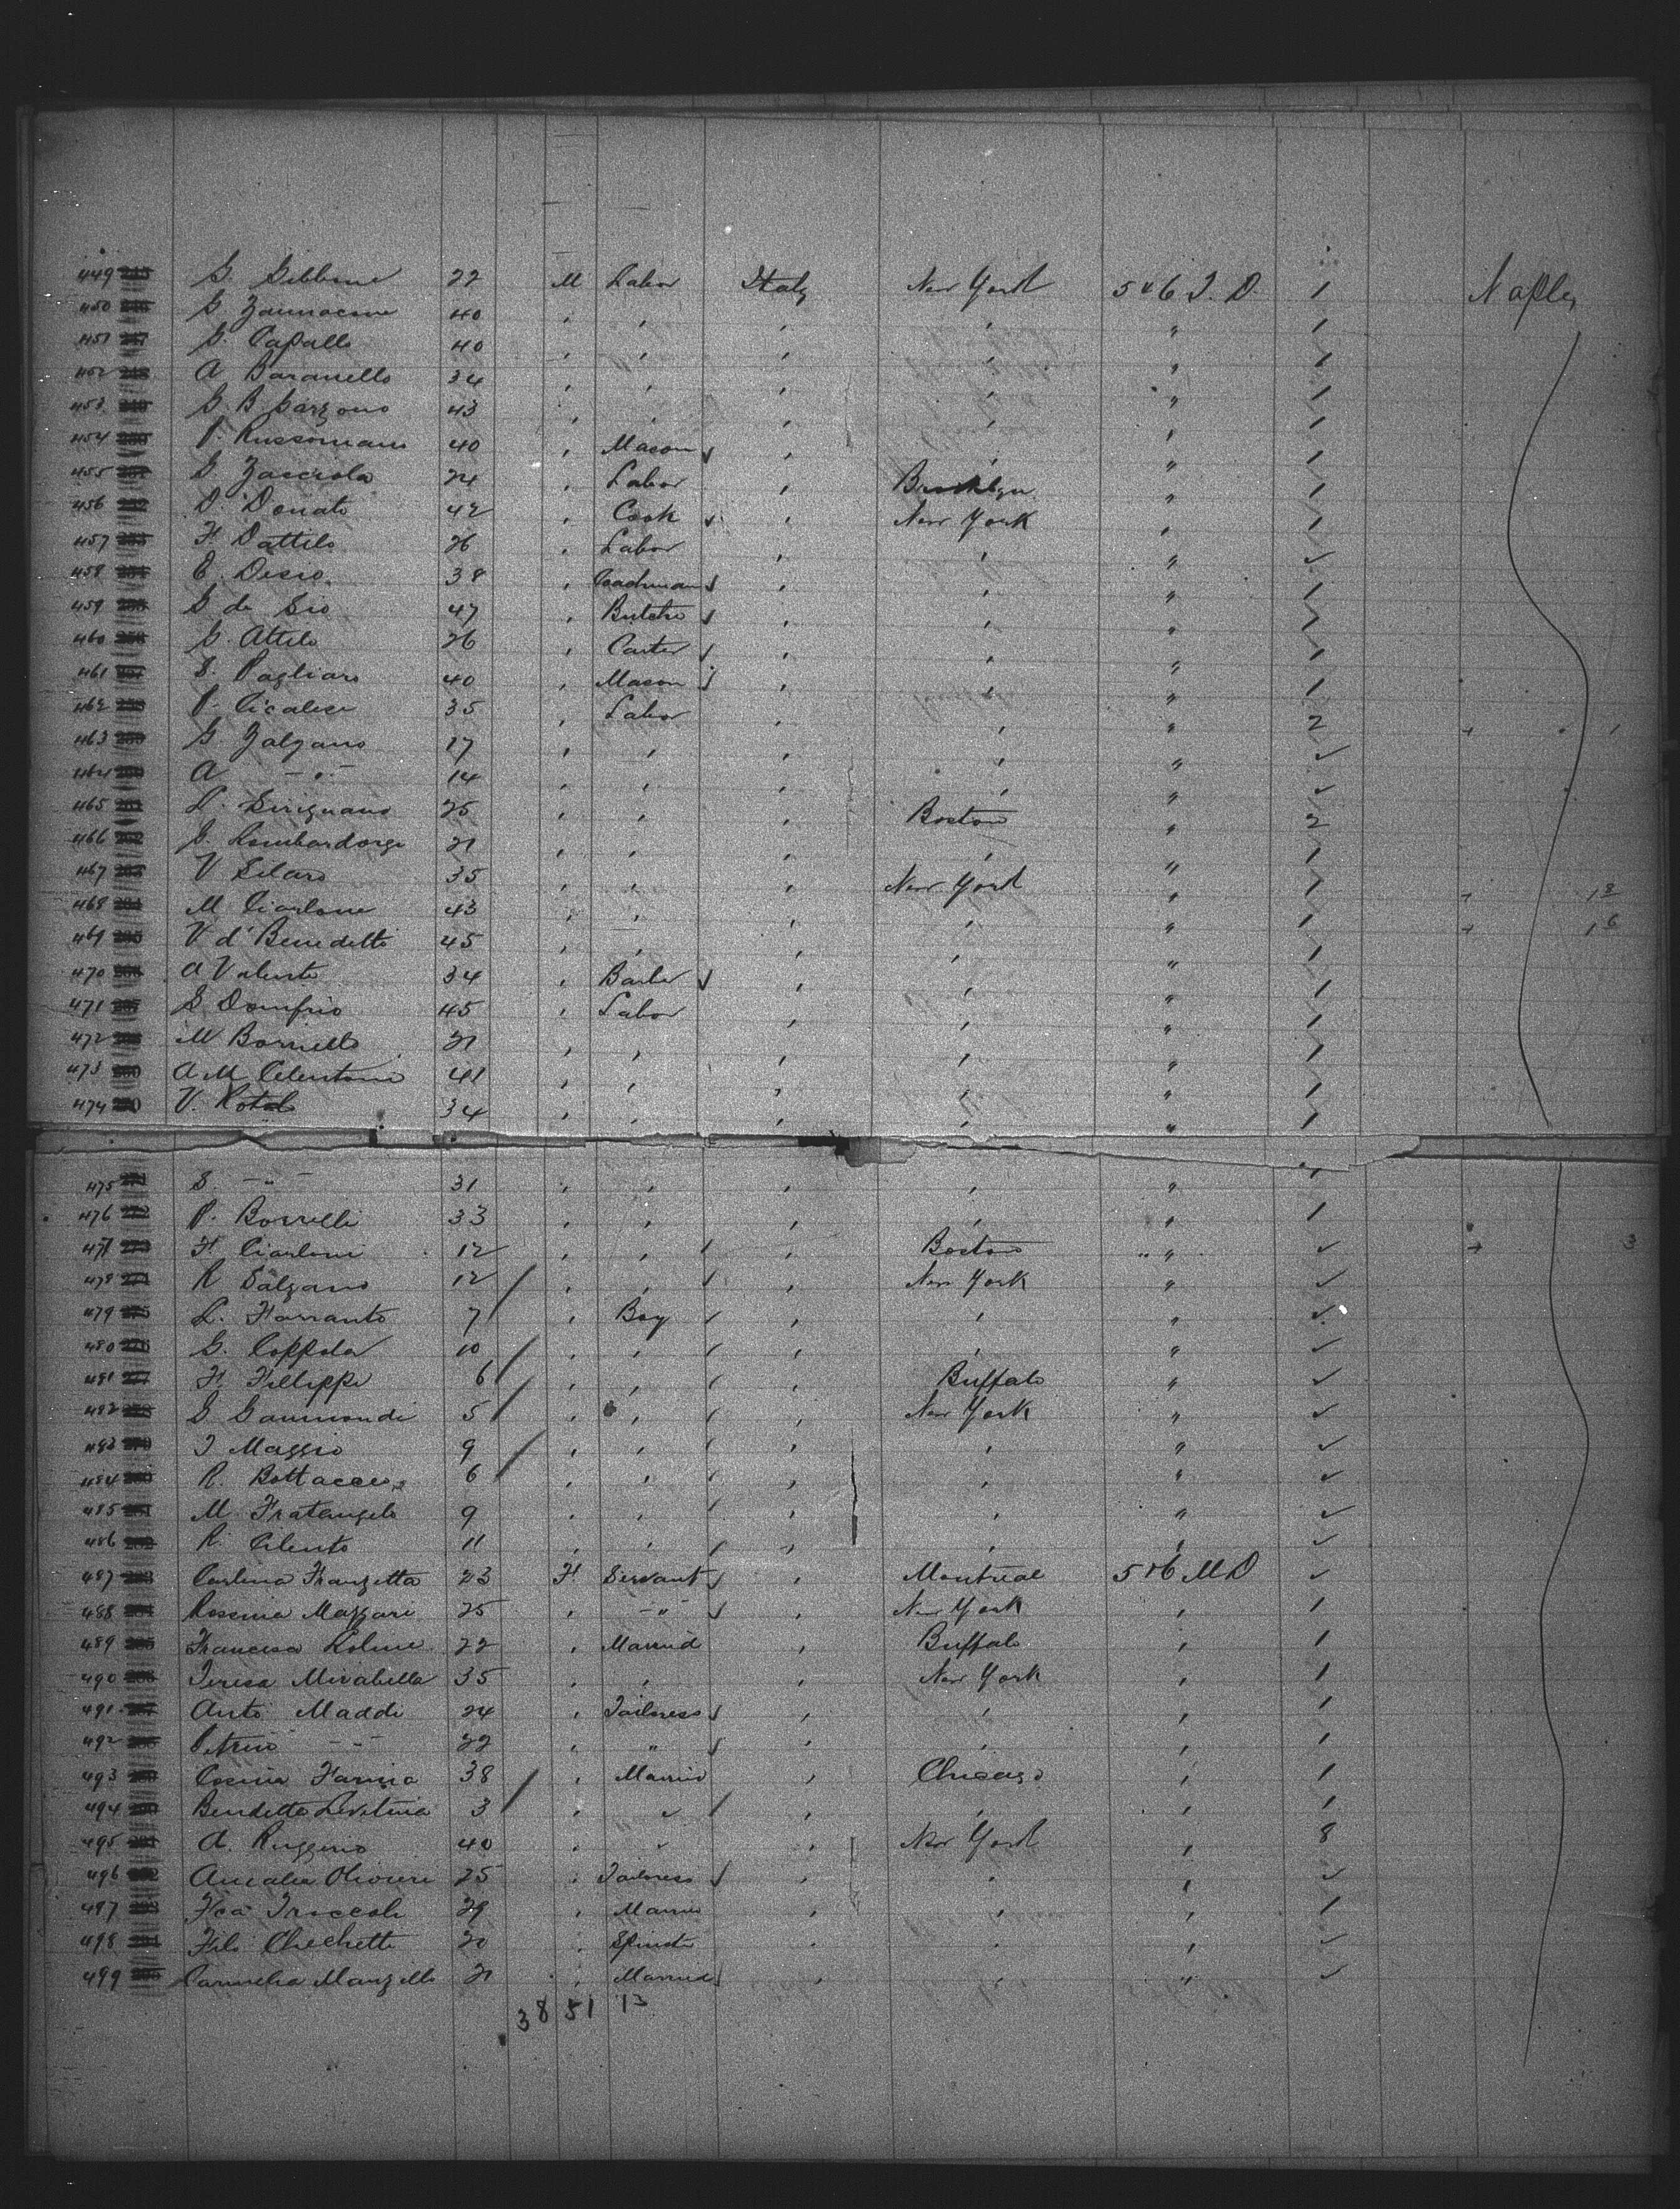 449 G. Gibbone 22 M Labor Italy New York 5 & 6 T. D. 1 Naples
450 G. 40 , , , , " 1
451 G. Capallo 40 , , , , " 1
452 A Baranello 34 , , , , " 1
453 G. B. Garzono 43 , , , , " 1
454 P. Russomano 40 , Mason , , " 1
455 G Zacciola 24 , Labor , Brooklyn " 1
456 D. Donato 42 , Cook , New York , 1
457 F. Dattilo 26 , Labor , , " ✓
458 E. Desio 38 , Coachman , , " 1
459 G de Sio 47 , Butcher , , "
460 G. Attilo 26 , Carter , , " 1
461 S. Pagliaro 40 , Mason , , " 1
462 P. Cicalese 35 , Labor , , " 2 + 1
463 G. Galgano 17 , , , , " ✓
464 A — " — 14 , , , , " ✓
465 D. Sirignano 25 , , , Boston " 2
466 G. 21 , , , , " 1
467 V Silaro 35 , , , New York , 1 + 1 8
468 M Ciarlone 43 , , , , " 1 + 1 6
469 V d'Benedetto 45 , , , , " 1
470 A Valente 34 , Barber , , " 1
471 G Domfrio 45 , Labor , , " 1
472 M Borriello 21 , , , , " 1
473 A M Celentano 41 , , , , " 1
474 V. Rotolo 34 , , , , " 1
475 S. — " — 31 , , , , " 1
476 P. Borrelli 33 , , , , , 1
477 F. Ciarloni 12 , , , Boston " ✓ + 3
478 R Salzano 12 , , , New York " ✓
479 L. Farranto 7 , Boy , , " ✓
480 G. Coppola 10 , , , , " ✓
481 F. Fillippi 6 , , , Buffalo " ✓
482 G Gaumondi 5 , , , New York " ✓
483 J Maggio 9 , , , , " ✓
484 R. Bottaccio 6 , , , , " ✓
485 M Fratangelo 9 , , , , " ✓
486 R. Cilento 11 , , , , , ✓
487 Carlina Franzetta 23 F. Servant , Montreal 5 & 6 M D ✓
488 Rossina Mazzari 25 , — " — , New York , 1
489 Francesca 22 , Married , Buffalo , 1
490 Teresa Mirabella 35 , , , New York , 1
491 Anto Maddi 24 , Tailoress , , , 1
492 — " — 22 , " , , , 1
493 Cosma Farina 38 , Married , Chicago , 1
494 Bendetta 3 , ✓ , , , 1
495 A. Ruggerio 40 , , , New York , 8
496 Amalia Olivieri 25 , Tailoress , , , ✓
497 Fca Troccoli 29 , Married , , , 1
498 Filo Chechetti 20 , Spinster , , , ✓
499 Carmelia Manzello 21 , Married , , " ✓
38 51 13